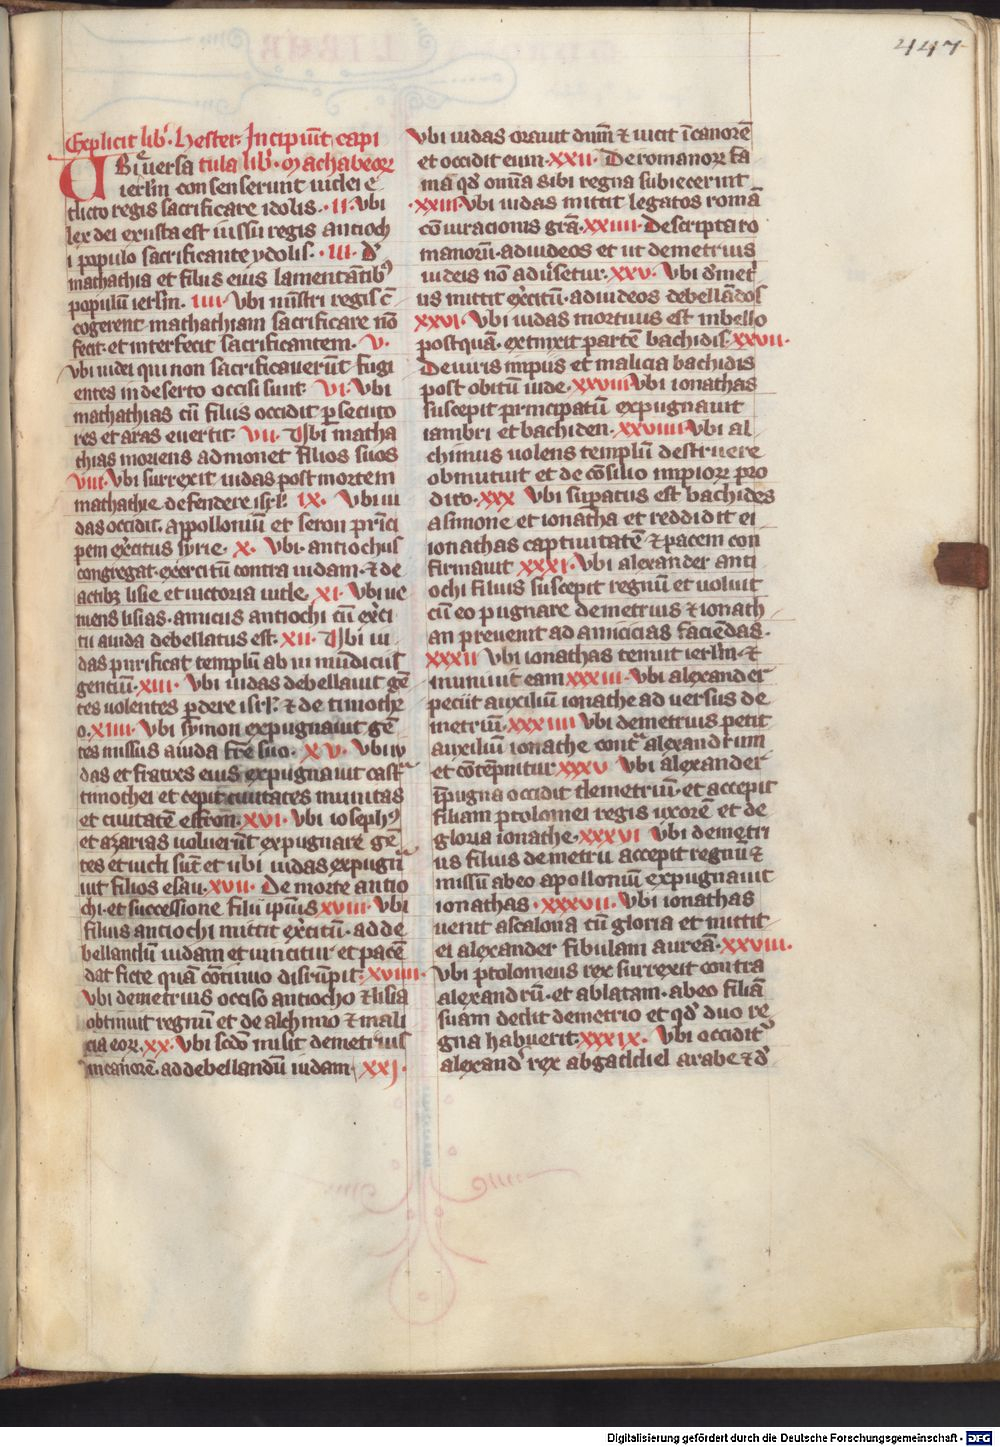 447
Explicit lib᷒. Hester. Incipiūt capi
Vbi eūersa tula lib᷒. Machabeoꝝ
ierl̄m consenserunt iudei e
dicto regis sacrificare idolis. II. Vbi
lex dei exusta est iussu regis antioch
i populo sacrificante ydolis. III. D̄
mathathia et filiis eius lamentātib᷒
populū ierl̄m. IIII. Vbi mīstri regis c̄
cogerent mathathiam sacrificare nō
fecit et interfecit sacrificantem. V.
Vbi iudei qui non sacrificauerūt fugi
entes in deserto occisi sunt. VI. Vbi
mathathias cū filiis occidit ꝑsecuto
res et aras euertit. VII. Vbi matha
thias moriens admonet filios suos
VIII. Vbi surrexit iudas post mortem
mathathie defendere isrl̄. IX. Vbi iu
das occidit appolloniū et seron prīci
pem exc̄itus syrie. X. Vbi antiochus
congregat exercitū contra iudam. ⁊ de
actibꝫ lisie et uictoria iude. XI. Vbi ue
niens lisias amicus antiochi cū exc̄i
tu a iuda debellatus est. XII. Vbi iu
das purificat templū ab in mūdiciis
gentiū. XIII. Vbi iudas debellauit gē
tes uolentes ꝑdere isrl̄. ⁊ de timothe
o. XIIII. Vbi symon expugnauit gē
tes missus a iuda fr̄e suo. XV. Vbi iu
das et fratres eius expugnauit castr̄
timothei et cepit ciuitates munitas
et ciuitatē effron. XVI. Vbi ioseph᷒
et azarias uoluerūt expugnare gē
tes et uicti sūt et ubi iudas expugn̄
uit filios esau. XVII. De morte antio
chi et successione filii ipius XVIII. Vbi
filius antiochi mittit exc̄itū ad de
bellandū iudam et uincitur et pacē
dat ficte quā cōtinuo disrūpit. XVIIII.
Vbi demetrius occiso antiocho ⁊ lisia
obtinuit regnū et de alchimo ⁊ mali
cia eoꝝ. XX. Vbi scd̄o misit demetrius
nicanorē ad debellandū iudam. XXI.
Vbi iudas orauit dn̄m ⁊ uicit ī canorē
et occidit eum. XXII. De romanoꝝ fa
ma qd̄ omīa sibi regna subiecerint
XXIII. Vbi iudas mittit legatos romā
cō iuracionis grā. XXIIII. Descripta ro
manorū ad iudeos et ut demetrius
iudeis nō adūsetur. XXV. Vbi d̄met᷒
us mittit exc̄itū ad iudeos debellādos
XXVI. Vbi iudas mortuus est in bello
postquā extinxit partē bachidis. XXVII.
De uiris impiis et malicia bachidis
post obitū iude. XXVIII. Vbi ionathas
suscepit principatū expugnauit
iambri et bachiden. XXVIIII. Vbi al
chimus uolens templū destruere
obmutuit et de cōsilio impioꝝ pro
dito. XXX Vbi suꝑatus est bachides
a simone et ionatha et reddidit ei
ionathas captiuitatē ⁊ pacem con
firmauit XXXI. Vbi alexander anti
ochi filius suscepit regnū et uoluit
cū eo pugnare demetrius ⁊ ionath
an preuenit ad amicicias faciēdas.
XXXII Vbi ionathas tenuit ierl̄m. ⁊
muniuit eam XXXIII. Vbi alexander
peciit auxiliū ionathe ad uersus de
metriū. XXXIIII Vbi demetrius petit
auxiliū ionathe contᵃ alexandrum
et cōtēpnitur XXXV Vbi alexander
ī pugna occidit demetriū et accepit
filiam ptolomei regis uxorē et de
gloria ionathe. XXXVI Vbi demetri
us filius demetrii accepit regnū ⁊
missū ab eo apolloniū expugnauit
ionathas. XXXVII. Vbi ionathas
uenit ascalona cū gloria et mittit
ei alexander fibulam aureā. XXVIII.
Vbi ptolomeus rex surrexit contra
alexandrū et ablatam ab eo filiā
suam dedit demetrio et qd̄ duo re
gna habuerit. XXXIX. Vbi occidit᷒
alexand᷒ rex ab gaddiel arabe ⁊ d̄
Digitalisierung gefördert durch die Deutsche Forschungsgemeinschaft - DFG